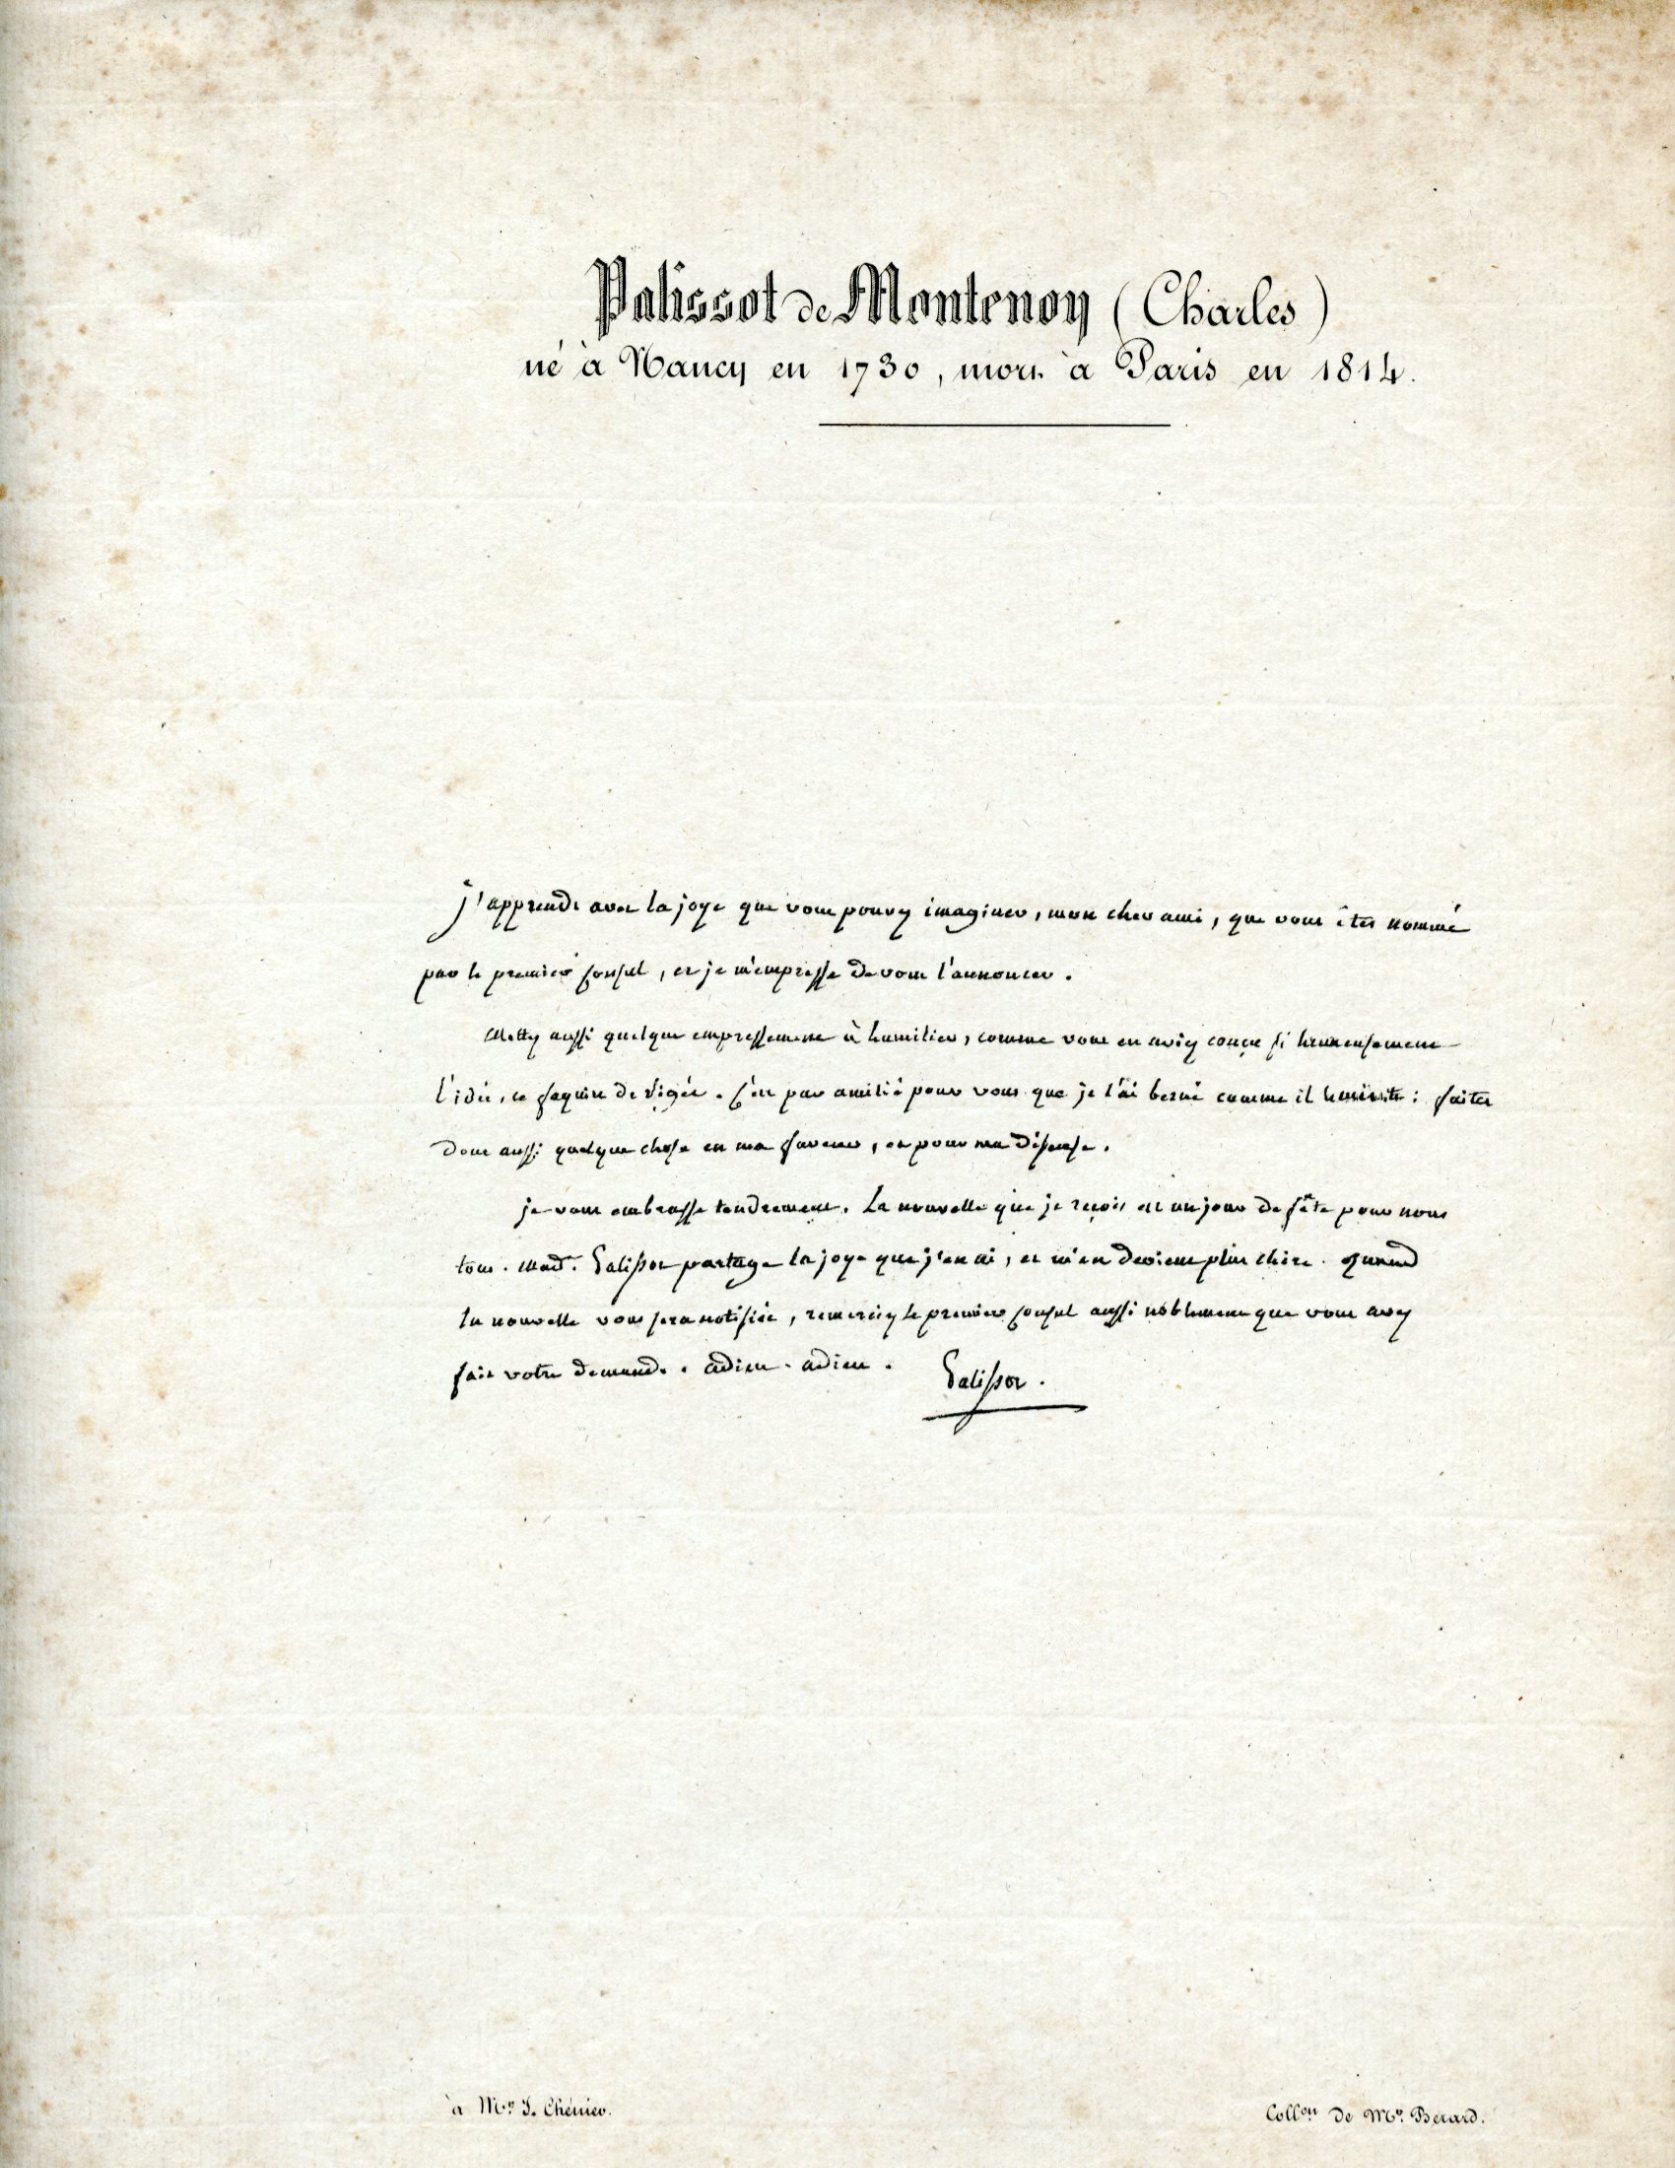 Palissot de Montenoy (Charles)
né à Nancy en 1730, mort à Paris en 1814.
j'apprends avec la joye que vous pouvez imaginer, mon cher ami, que vous êtes nommé
par le premier consul, et je m'empresse de vous l'annoncer.
Mettez aussi quelque empressement à humilier, comme vous en aviez conçu si heureusement
l'idée, ce faquin de Vigée. C'est par amitié pour vous que je l'ai berné comme il le mérite : faites
donc aussi quelque chose en ma faveur, et pour ma défense.
je vous embrasse tendrement. La nouvelle que je reçois est un jour de fête pour nous
tous. Mad.e Palissot partage la joye que j'en ai, et m'en devient plus chère. Quand
la nouvelle vous sera notifiée, remerciez le premier consul aussi noblement que vous avez
fait votre demande. adieu. adieu.
Palissot.
à Mr. J. Chénier.
Collon de Mr. Berard.